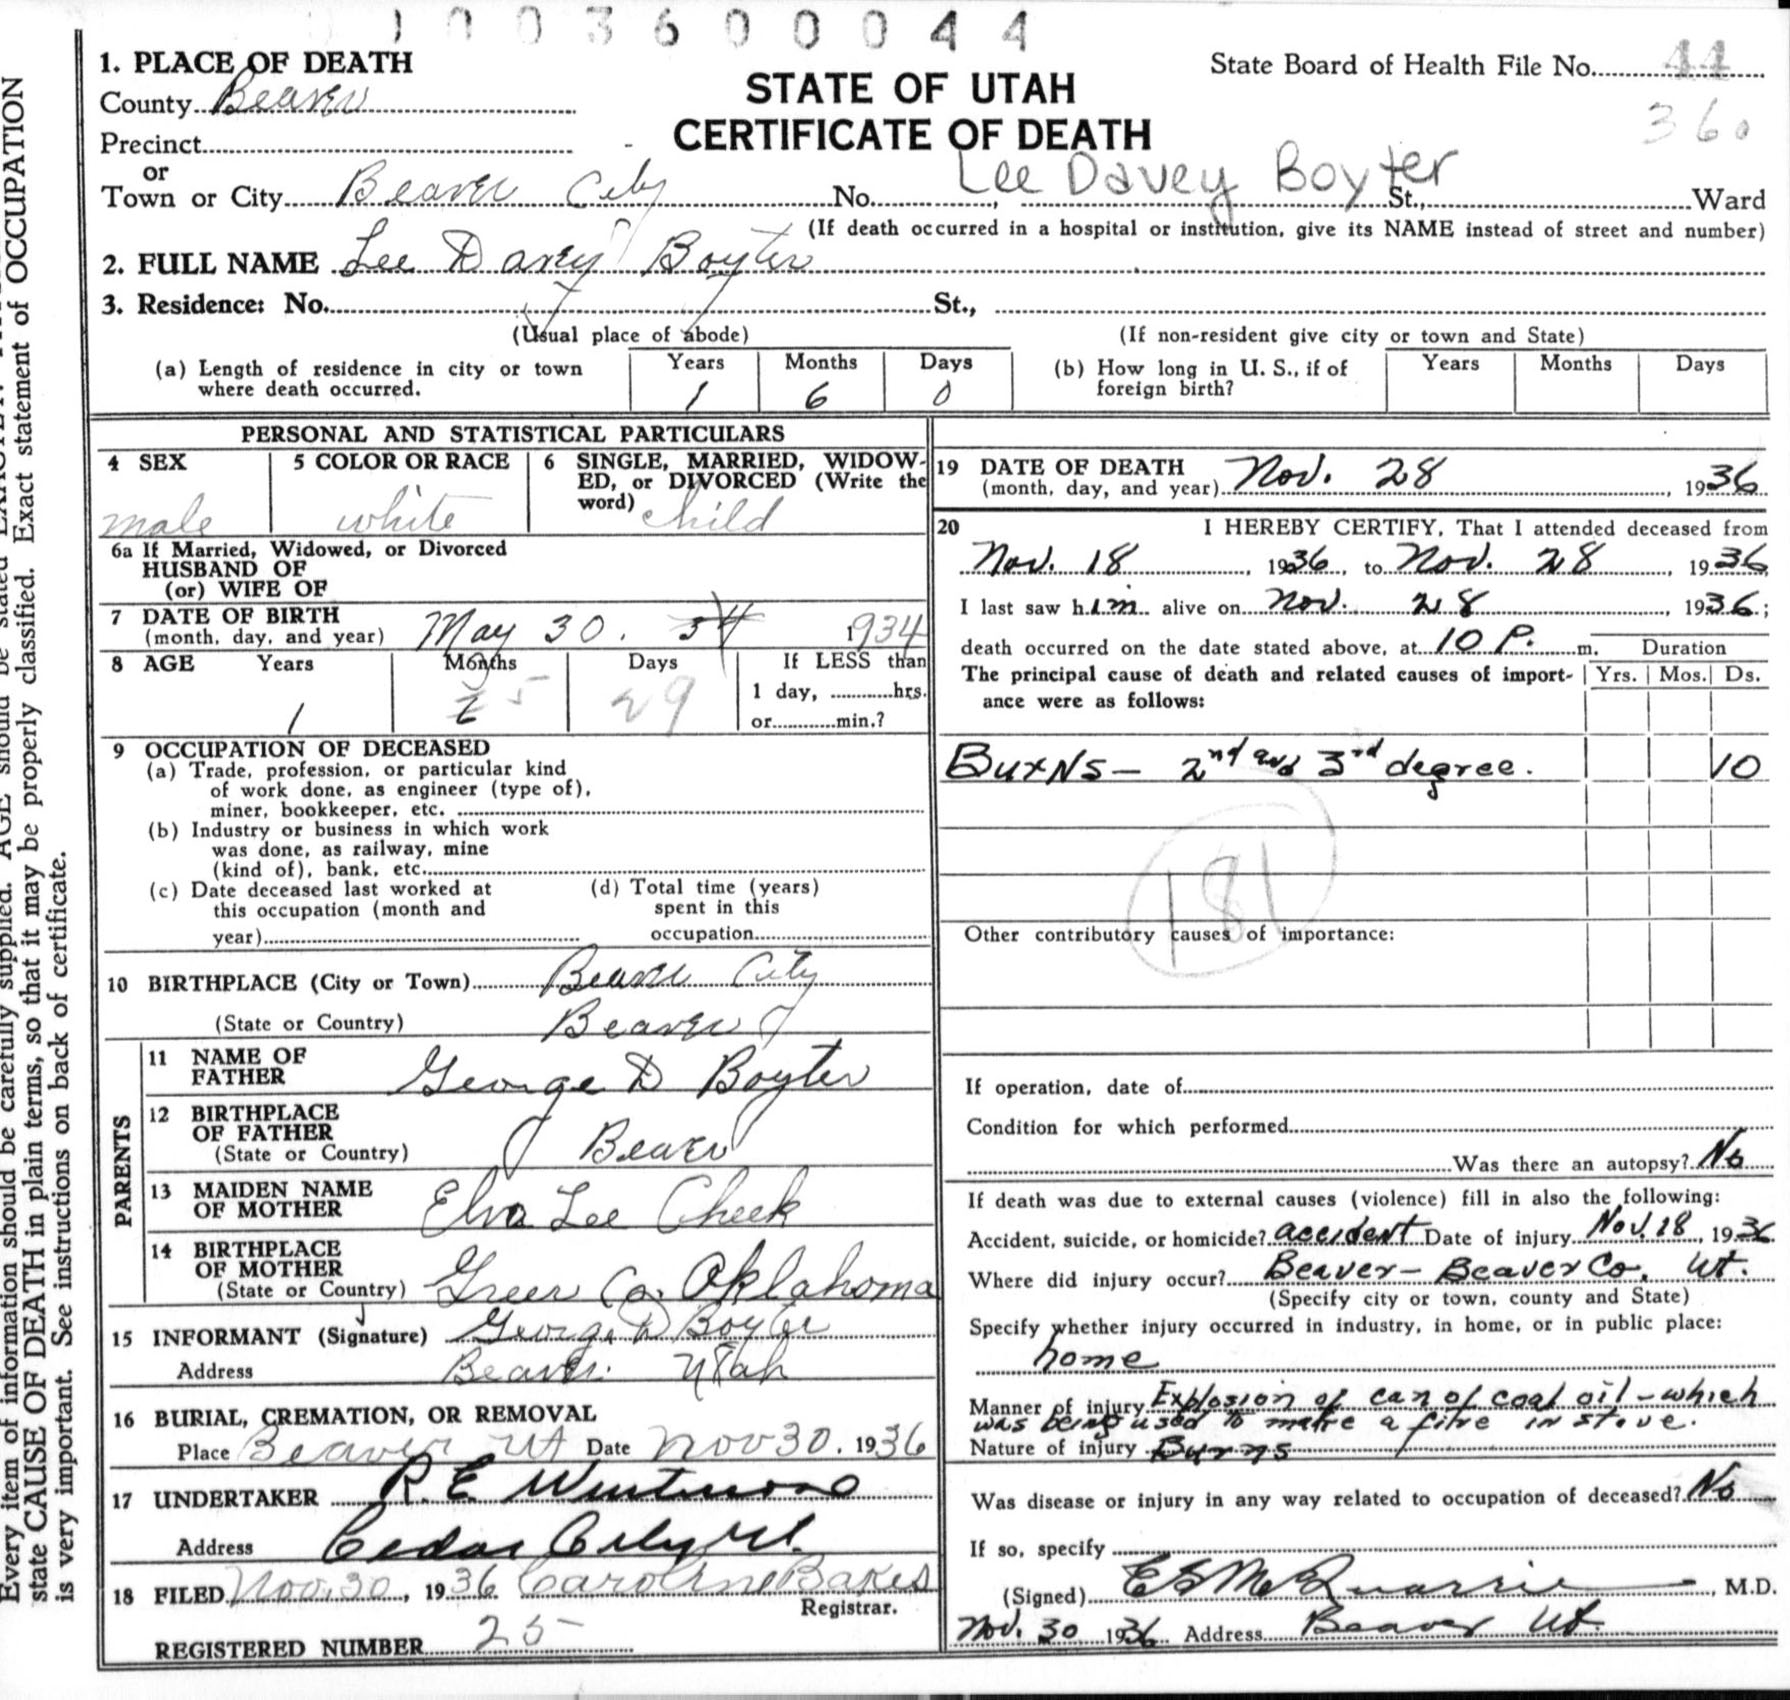 1003600044
1. PLACE OF DEATH
State Board of Health File No. 44
County Beaver
STATE OF UTAH
360
Precinct
CERTIFICATE OF DEATH
or
Lee Davey Boyter
Town or City Beaver City No. St., Ward
(If death occurred in a hospital or institution, give its NAME instead of street and number)
2. FULL NAME Lee Davey Boyter
3. Residence: No. St.,
(Usual place of abode) (If non-resident give city or town and State)
(a) Length of residence in city or town where death occurred. Years 1 Months 6 Days 0
(b) How long in U. S., if of foreign birth? Years Months Days
PERSONAL AND STATISTICAL PARTICULARS
4 SEX male
5 COLOR OR RACE white
6 SINGLE, MARRIED, WIDOW-
ED, or DIVORCED (Write the
word) child
6a If Married, Widowed, or Divorced
HUSBAND OF
(or) WIFE OF
7 DATE OF BIRTH
(month, day, and year) May 30. 34 1934
8 AGE Years Months Days If LESS than
1 5 29 1 day, hrs.
or min.?
9 OCCUPATION OF DECEASED
(a) Trade, profession, or particular kind
of work done, as engineer (type of),
miner, bookkeeper, etc.
(b) Industry or business in which work
was done, as railway, mine
(kind of), bank, etc.
(c) Date deceased last worked at
this occupation (month and
year)
(d) Total time (years)
spent in this
occupation
10 BIRTHPLACE (City or Town) Beaver City
(State or Country) Beaver
PARENTS
11 NAME OF
FATHER George D Boyter
12 BIRTHPLACE
OF FATHER
(State or Country) Beaver
13 MAIDEN NAME
OF MOTHER Elva Lee Cheek
14 BIRTHPLACE
OF MOTHER
(State or Country) Greer Co. Oklahoma
15 INFORMANT (Signature) George D Boyter
Address Beaver. Utah
16 BURIAL, CREMATION, OR REMOVAL
Place Beaver Ut Date Nov 30. 1936
17 UNDERTAKER R. E.
Address Cedar City Ut.
18 FILED Nov. 30, 1936 Caroline Bakes
Registrar.
REGISTERED NUMBER 25
19 DATE OF DEATH
(month, day, and year) Nov. 28, 1936
20 I HEREBY CERTIFY, That I attended deceased from
Nov. 18, 1936, to Nov. 28, 1936
I last saw him alive on Nov. 28, 1936;
death occurred on the date stated above, at 10 P. m. Duration
The principal cause of death and related causes of import- Yrs. Mos. Ds.
ance were as follows:
Burns - 2nd and 3rd degree. 10
181
Other contributory causes of importance:
If operation, date of
Condition for which performed
Was there an autopsy? No
If death was due to external causes (violence) fill in also the following:
Accident, suicide, or homicide? accident Date of injury Nov. 18, 1936
Where did injury occur? Beaver - Beaver Co. Ut.
(Specify city or town, county and State)
Specify whether injury occurred in industry, in home, or in public place:
home
Manner of injury Explosion of can of coal oil - which
was being used to make a fire in stove.
Nature of injury Burns
Was disease or injury in any way related to occupation of deceased? No
If so, specify
(Signed) E S McQuarrie, M.D.
Nov. 30 1936 Address Beaver Ut.
Every item of information should be carefully supplied. AGE should be stated
state CAUSE OF DEATH in plain terms, so that it may be properly classified. Exact statement of OCCUPATION
is very important. See instructions on back of certificate.